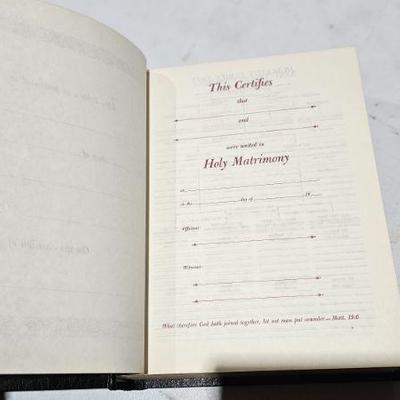 This Certifies
that
and
were united in
Holy Matrimony
at
on the day of 19
Officiant
Witness
What therefore God hath joined together, let not man put asunder.—Matt. 19:6